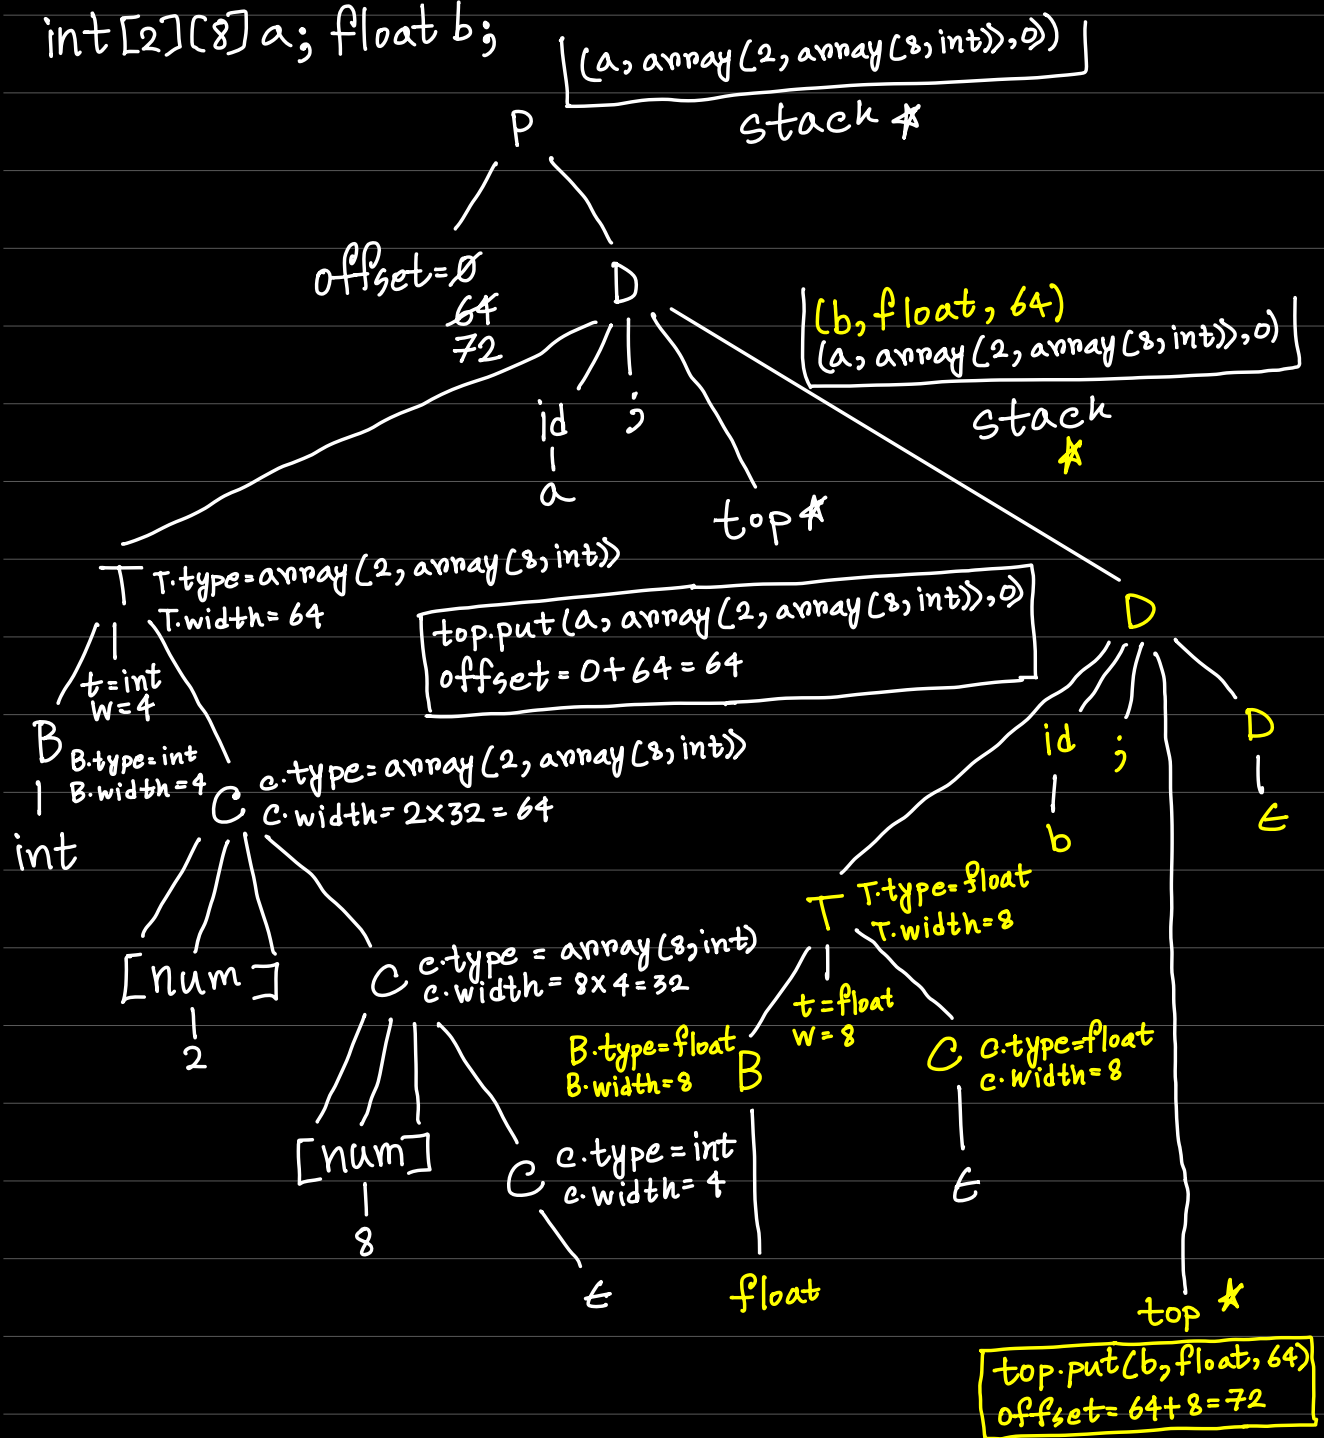 int[2][8] a; float b;
(a, array(2, array(8, int)), 0))
stack ☆
P
offset = 0
64
72
D
(b, float, 64)
(a, array(2, array(8, int)), 0)
stack
☆
id
;
a
top ☆
T
T.type = array(2, array(8, int))
T.width = 64
top.put(a, array(2, array(8, int)), 0)
offset = 0 + 64 = 64
D
t = int
w = 4
B
B.type = int
B.width = 4
int
C
C.type = array(2, array(8, int))
C.width = 2 × 32 = 64
id
;
D
b
ε
T
T.type = float
T.width = 8
[num]
2
C
C.type = array(8, int)
C.width = 8 × 4 = 32
t = float
w = 8
B.type = float
B.width = 8
B
C
C.type = float
C.width = 8
[num]
8
C
C.type = int
C.width = 4
ε
ε
float
top ☆
top.put(b, float, 64)
offset = 64 + 8 = 72